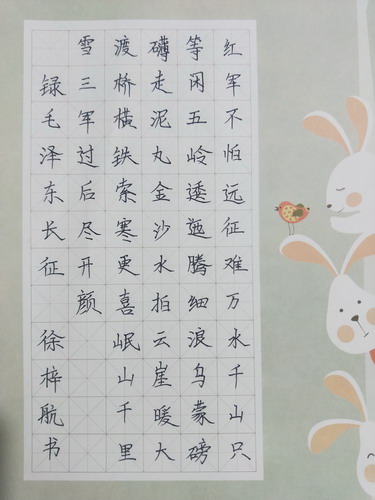 红军不怕远征难万水千山只
等闲五岭逶迤腾细浪乌蒙磅
礴走泥丸金沙水拍云崖暖大
渡桥横铁索寒更喜岷山千里
雪三军过后尽开颜
録毛泽东长征 徐梓航书